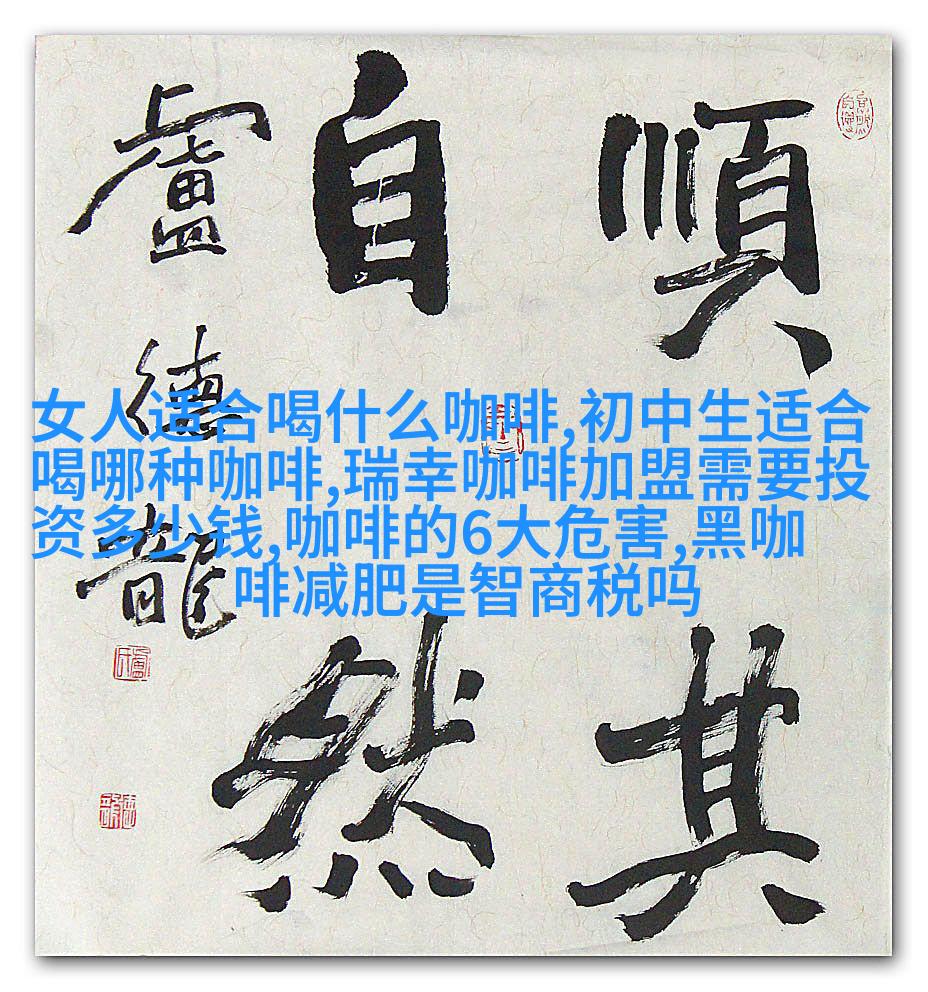 順其
自然
盧德龍
女人适合喝什么咖啡,初中生适合
喝哪种咖啡,瑞幸咖啡加盟需要投
资多少钱,咖啡的6大危害,黑咖
啡减肥是智商税吗